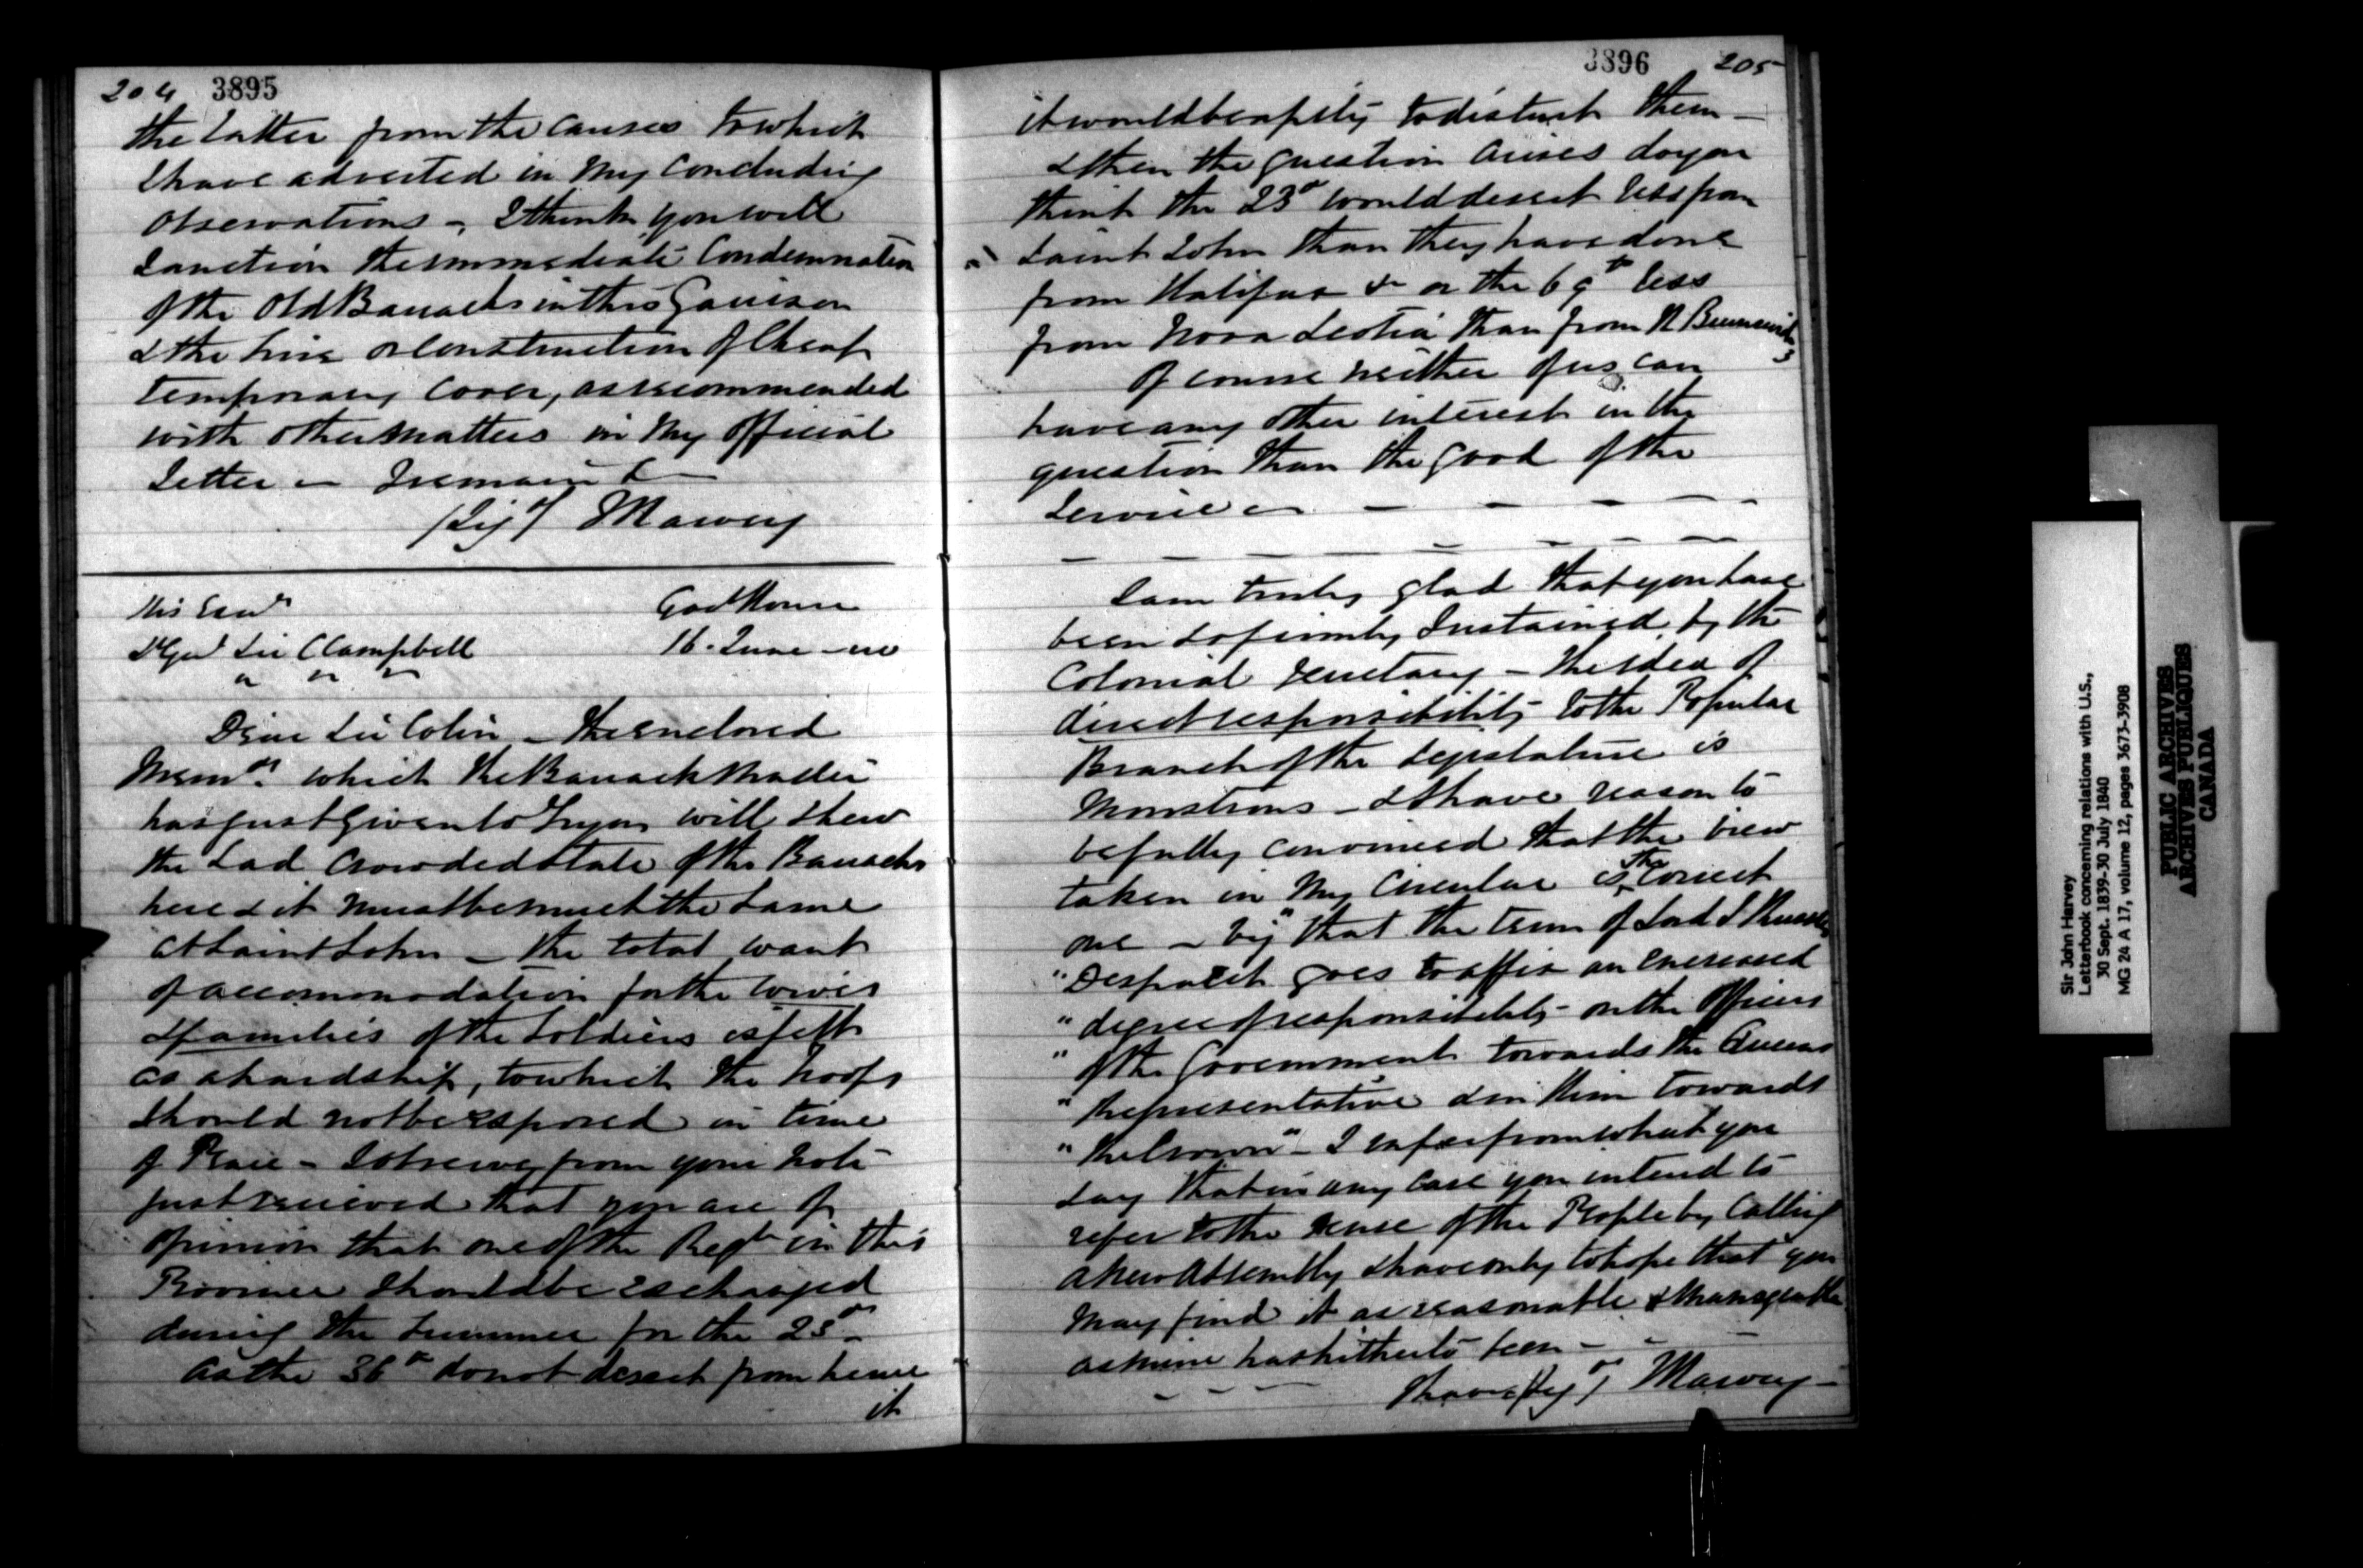 204 3895
the latter from the causes to which
I have adverted in my concluding
observations - I think you will
sanction the immediate condemnation
of the old Barracks in this Garrison
& the hire or construction of cheap
temporary cover, as recommended
with other matters in my official
letter - I remain &
(Sigd) J Harvey
His Excy
Govt House
Lt Genl Sir C Campbell
16. June -
" " "
Dear Sir Colin - The enclosed
Memm. which the Barrack Master
has just given to me will shew
the sad crowded state of the Barracks
here & it must be much the same
at Saint John - the total want
of accommodation for the wives
& families of the soldiers is felt
as a hardship, to which the Troops
should not be exposed in time
of Peace - I observe from your note
just received that you are of
opinion that one of the Regts in this
Province should be exchanged
during the summer for the 23d -
As the 36th do not desert from hence
it
3896 205
it would be a pity to disturb them -
& then the question arises do you
think the 23d would desert less from
" Saint John than they have done
from Halifax & or the 69th less
from Nova Scotia than from N Brunswick
Of course neither of us can
have any other interest in the
question than the good of the
Service - - - - - -
I am truly glad that you have
been so firmly sustained by the
Colonial Secretary - the idea of
direct responsibility to the Popular
Branch of the Legislature is
monstrous - & I have reason to
be fully convinced that the view
taken in my Circular is the correct
one - viz "that the term of Lord J Russells
" Despatch goes to affix an encreased
" degree of responsibility - on the officers
" of the Government towards the Queens
" Representative & in him towards
" the Crown" - I infer from what you
say that in any case you intend to
refer to the sense of the People by calling
a new Assembly & have only to hope that you
may find it as reasonable & manageable
as mine has hitherto been -
- - - - I have (Sigd) J Harvey -
Sir John Harvey
Letterbook concerning relations with U.S.,
30 Sept. 1839-30 July 1840
MG 24 A 17, volume 12, pages 3673-3908
PUBLIC ARCHIVES
ARCHIVES PUBLIQUES
CANADA